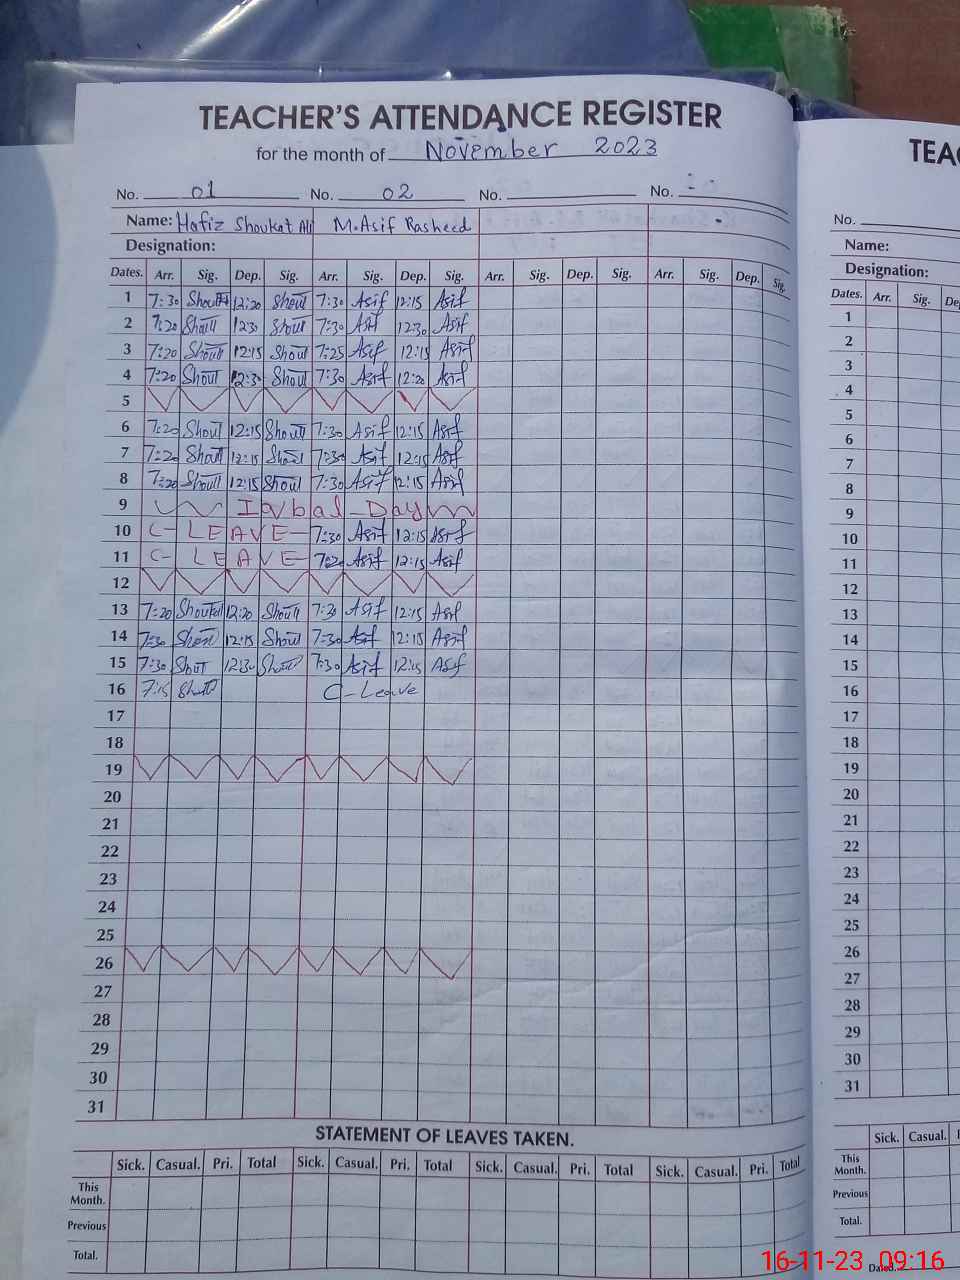 TEACHER'S ATTENDANCE REGISTER
for the month of November 2023
No. 01 No. 02 No. No.
Name: Hafiz Shoukat Ali M.Asif Rasheed
Designation:
Dates. Arr. Sig. Dep. Sig. Arr. Sig. Dep. Sig. Arr. Sig. Dep. Sig. Arr. Sig. Dep. Sig.
1 7:30 12:20 7:30 Asif 12:15 Asif
2 7:20 12:30 7:30 Asif 12:30 Asif
3 7:20 12:15 7:25 Asif 12:15 Asif
4 7:20 12:30 7:30 Asif 12:20 Asif
5
6 7:20 12:15 7:30 Asif 12:15 Asif
7 7:20 12:15 7:30 Asif 12:15 Asif
8 7:20 12:15 7:30 Asif 12:15 Asif
9 Iqbal-Day
10 C-LEAVE- 7:30 Asif 12:15 Asif
11 C-LEAVE- 7:20 Asif 12:15 Asif
12
13 7:20 12:20 7:30 Asif 12:15 Asif
14 7:30 12:15 7:30 Asif 12:15 Asif
15 7:30 12:30 7:30 Asif 12:15 Asif
16 7:15 C-Leave
17
18
19
20
21
22
23
24
25
26
27
28
29
30
31
STATEMENT OF LEAVES TAKEN.
Sick. Casual. Pri. Total Sick. Casual. Pri. Total Sick. Casual. Pri. Total Sick. Casual. Pri. Total
This
Month.
Previous
Total.
TEA
No.
Name:
Designation:
Dates. Arr. Sig. De
1
2
3
4
5
6
7
8
9
10
11
12
13
14
15
16
17
18
19
20
21
22
23
24
25
26
27
28
29
30
31
Sick. Casual.
This
Month.
Previous
Total.
Dated.
16-11-23 09:16